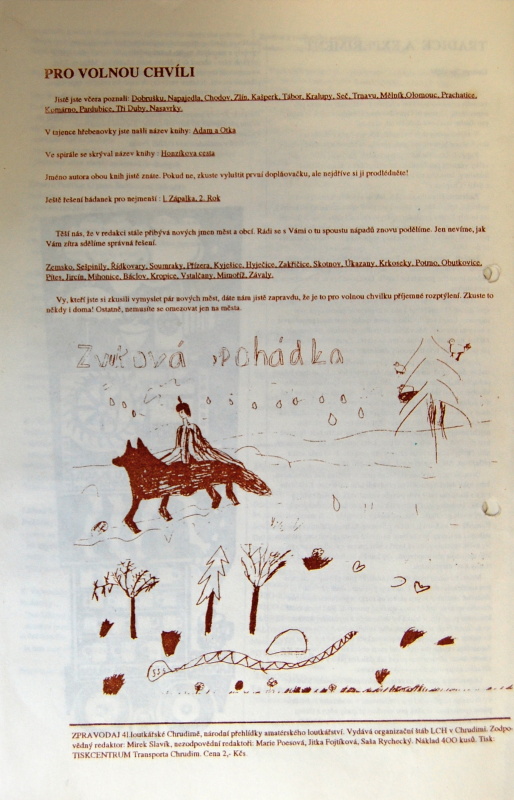 PRO VOLNOU CHVÍLI
Jistě jste včera poznali: Dobrušku, Napajedla, Chodov, Zlín, Kašperk, Tábor, Kralupy, Seč, Trnavu, Mělník, Olomouc, Prachatice,
Komárno, Pardubice, Tři Duby, Nasavrky.
V tajence hřebenovky jste našli název knihy: Adam a Otka
Ve spirále se skrýval název knihy : Honzíkova cesta
Jméno autora obou knih jistě znáte. Pokud ne, zkuste vyluštit první doplňovačku, ale nejdříve si ji prodlědněte!
Ještě řešení hádanek pro nejmenší : 1. Zápalka, 2. Rok
Těší nás, že v redakci stále přibývá nových jmen měst a obcí. Rádi se s Vámi o tu spoustu nápadů znovu podělíme. Jen nevíme, jak
Vám zítra sdělíme správná řešení.
Zemsko, Sešpinily, Řídkovary, Soumraky, Přízera, Kyješice, Hyječice, Zakřičice, Skotnov, Úkazany, Krkoseky, Potmo, Obutkovice,
Pítes, Jircín, Mihonice, Báclov, Kropice, Vstalčany, Mimoříž, Závaly.
Vy, kteří jste si zkusili vymyslet pár nových měst, dáte nám jistě zapravdu, že je to pro volnou chvilku příjemné rozptýlení. Zkuste to
někdy i doma! Ostatně, nemusíte se omezovat jen na města.
Zvuková pohádka
ZPRAVODAJ 41.loutkářské Chrudimě, národní přehlídky amatérského loutkářství. Vydává organizační štáb LCH v Chrudimi. Zodpo-
vědný redaktor: Mirek Slavík, nezodpovědní redaktoři: Marie Poesová, Jitka Fojtíková, Saša Rychecký. Náklad 400 kusů. Tisk:
TISKCENTRUM Transporta Chrudim. Cena 2,- Kčs.